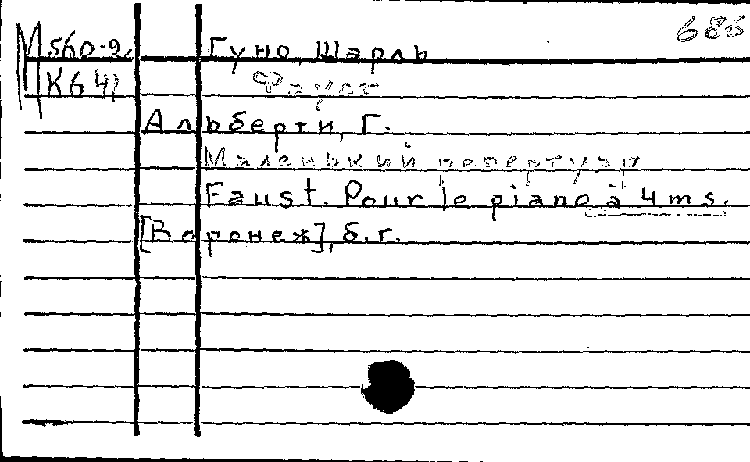 686
М 560-2 Гуно, Шарль
К641 Фауст
Альберти, Г.
Маленький репертуар
Faust. Pour le piano à 4 ms.
[Воронеж], б.г.